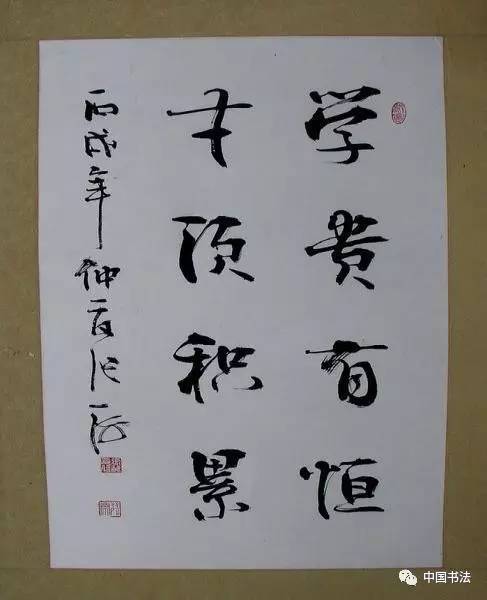 学贵有恒
才须积累
丙戌年仲夏张一
中国书法